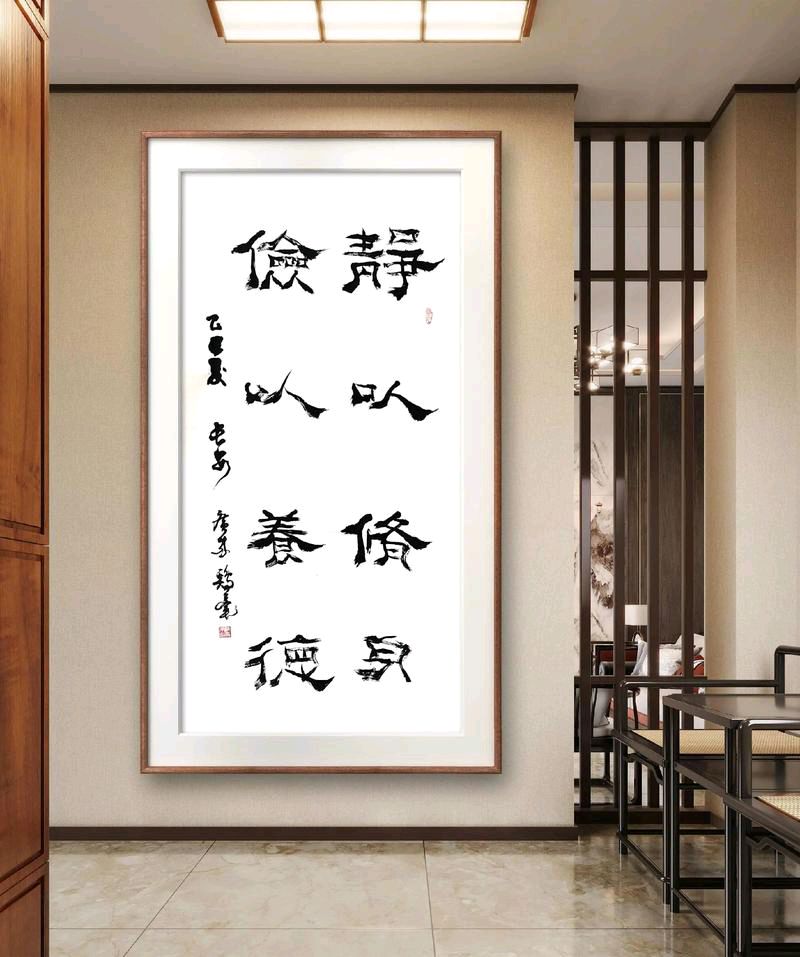 靜以脩身
儉以養德
乙巳夏 長安